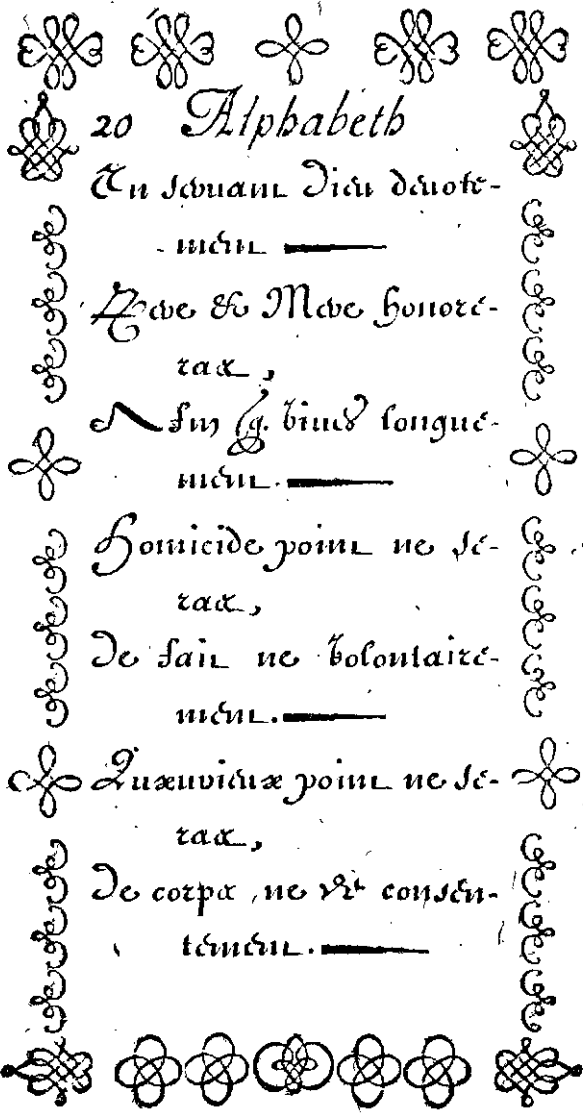 20 Alphabeth
En seruant Dieu deuote-
ment
Pere & Mere honore-
ras,
Afin q. viues longue-
ment.
Homicide point ne se-
ras,
De fait ne volontaire-
ment.
Luxurieux point ne se-
ras,
De corps ne de consen-
tement.